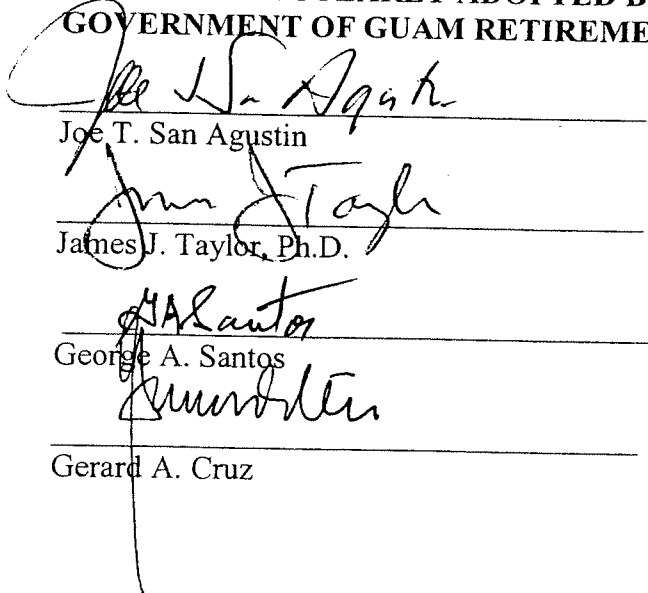 ADOPTED B
GOVERNMENT OF GUAM RETIREME
Joe San Agustin
Joe T. San Agustin
James J Taylor
James J. Taylor, Ph.D.
GASantos
George A. Santos
Gerard A. Cruz